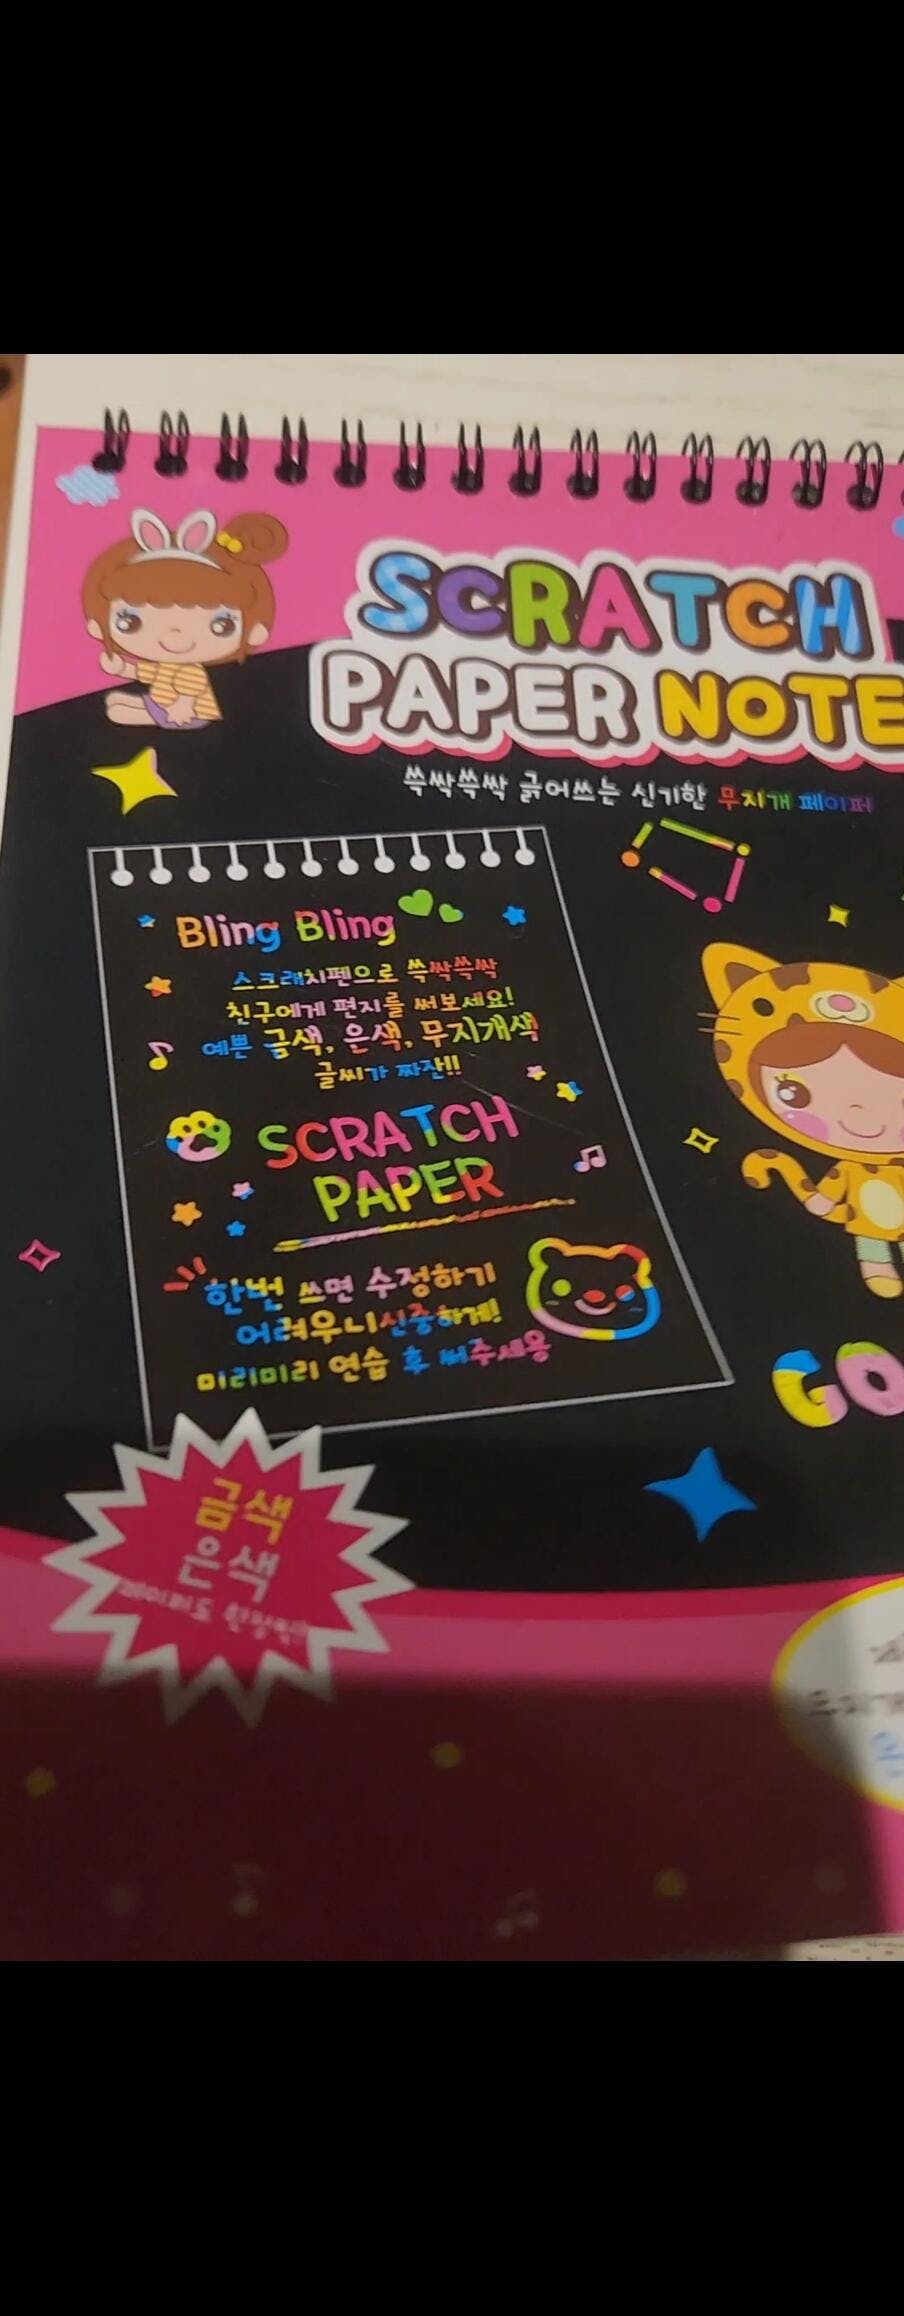 SCRATCH
PAPER NOTE
쓱싹쓱싹 긁어쓰는 신기한 무지개 페이퍼
Bling Bling
스크래치펜으로 쓱싹쓱싹
친구에게 편지를 써보세요!
예쁜 금색, 은색, 무지개색
글씨가 짜잔!!
SCRATCH
PAPER
한번 쓰면 수정하기
어려우니 신중하게!
미리미리 연습 후 써주세용
GO
금색
은색